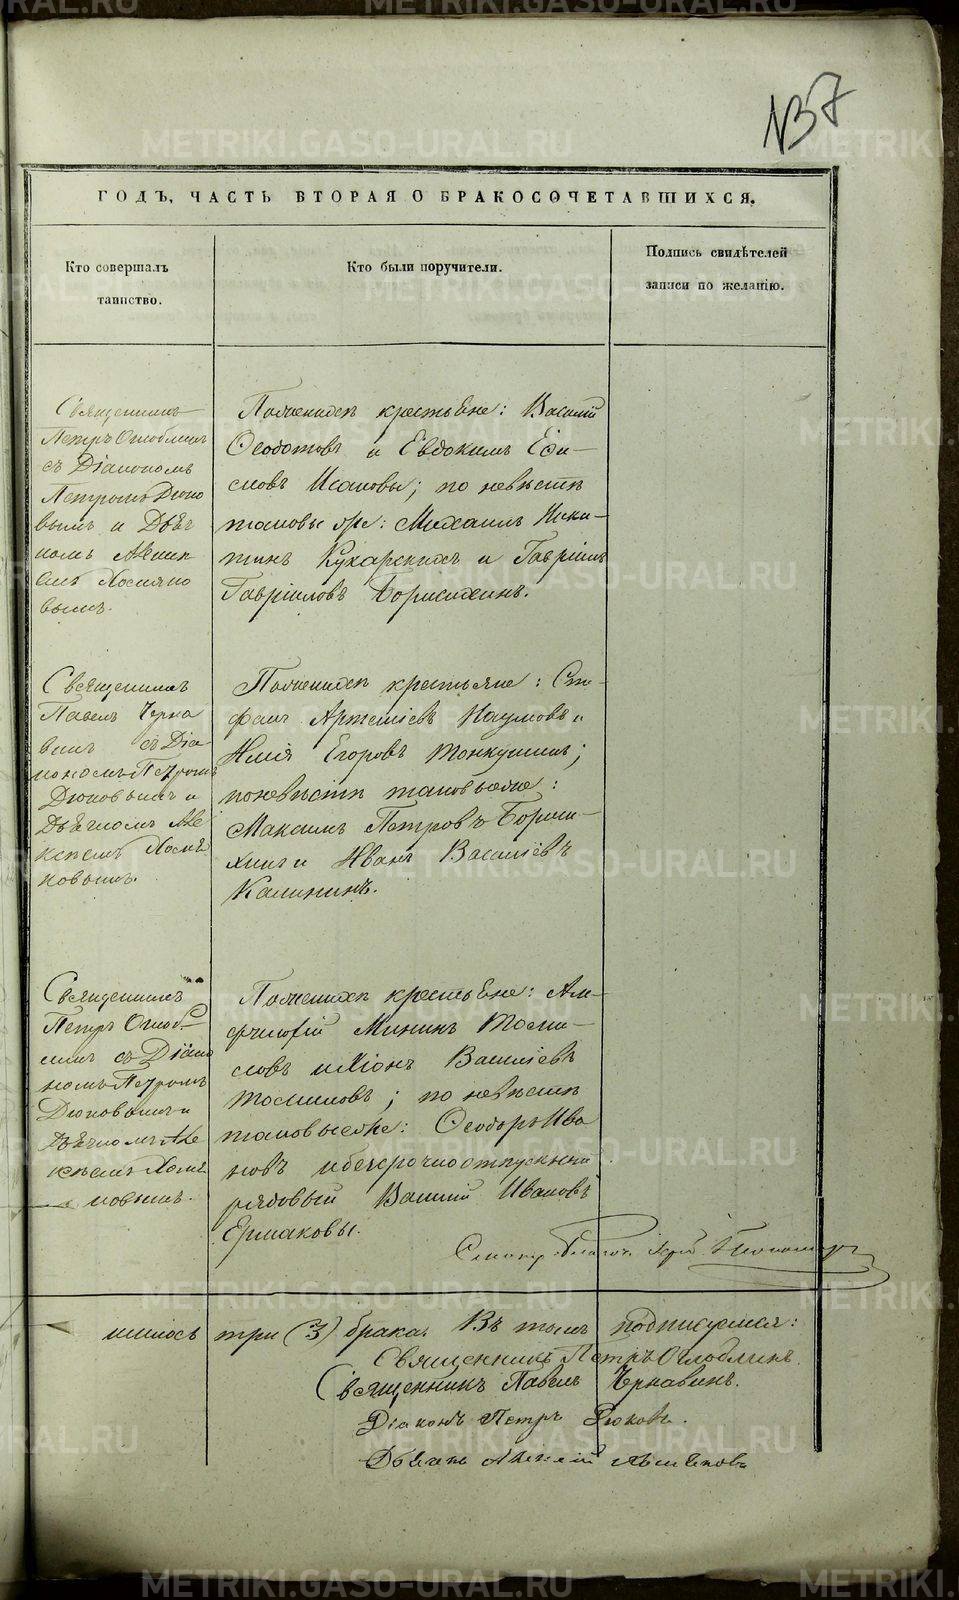 137
ГОДЪ, ЧАСТЬ ВТОРАЯ О БРАКОСОЧЕТАВШИХСЯ.
Кто совершалъ
таинство.
Кто были поручители.
Подпись свидѣтелей
записи по желанію.
Священникъ
Петръ Оглоблинъ
съ Діакономъ
Петромъ Дюко
вымъ и Дьяч
комъ Алек
вымъ.
По женихѣ крестьяне: Василій
Ѳедотовъ и Евдокимъ Еѳи-
мовъ Исаковы; по невѣстѣ
таковые же: Михаилъ Ники-
тинъ Кухарскихъ и Гавріилъ
Гавріиловъ Борисихинъ.
Священникъ
Павелъ Черна
винъ съ Діа
кономъ Петромъ
Дюковымъ и
Дьячкомъ Але
ксѣемъ
ковымъ.
По женихѣ крестьяне: Сте-
фанъ Артеміевъ Наумовъ и
Илія Егоровъ Тонкушинъ;
по невѣстѣ таковые же:
Максимъ Петровъ Бориси-
хинъ и Иванъ Василіевъ
Калининъ.
Священникъ
Петръ Оглоб-
линъ съ Діако
номъ Петромъ
Дюковымъ и
Дьячкомъ Але
ксѣемъ
ковымъ.
По женихѣ крестьяне: Ам-
филофій Мининъ Тосми-
новъ и Хіонъ Василіевъ
Тосминовъ; по невѣстѣ
таковые же: Ѳедоръ Ива
новъ и безсрочноотпускный
рядовый Василій Ивановъ
Ермаковы.
три (3) брака. Въ томъ подписуемся:
Священникъ Петръ Оглоблинъ.
Священникъ Павелъ Чернавинъ.
Діаконъ Петръ Дюковъ.
Дьячекъ Алексей
METRIKI.GASO-URAL.RU